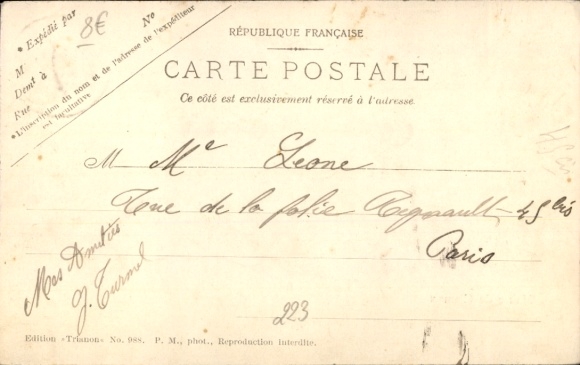 • Expédié par
M
Demt à
Rue
N°
• L'inscription du nom et de l'adresse de l'expéditeur
est facultative
8€
RÉPUBLIQUE FRANÇAISE
CARTE POSTALE
Ce côté est exclusivement réservé à l'adresse.
M Me Leone
Rue de la folie Regnault 45 bis
Paris
Mes Amitiés
J. Turmel
223
Edition «Trianon» No. 988. P. M., phot., Reproduction interdite.